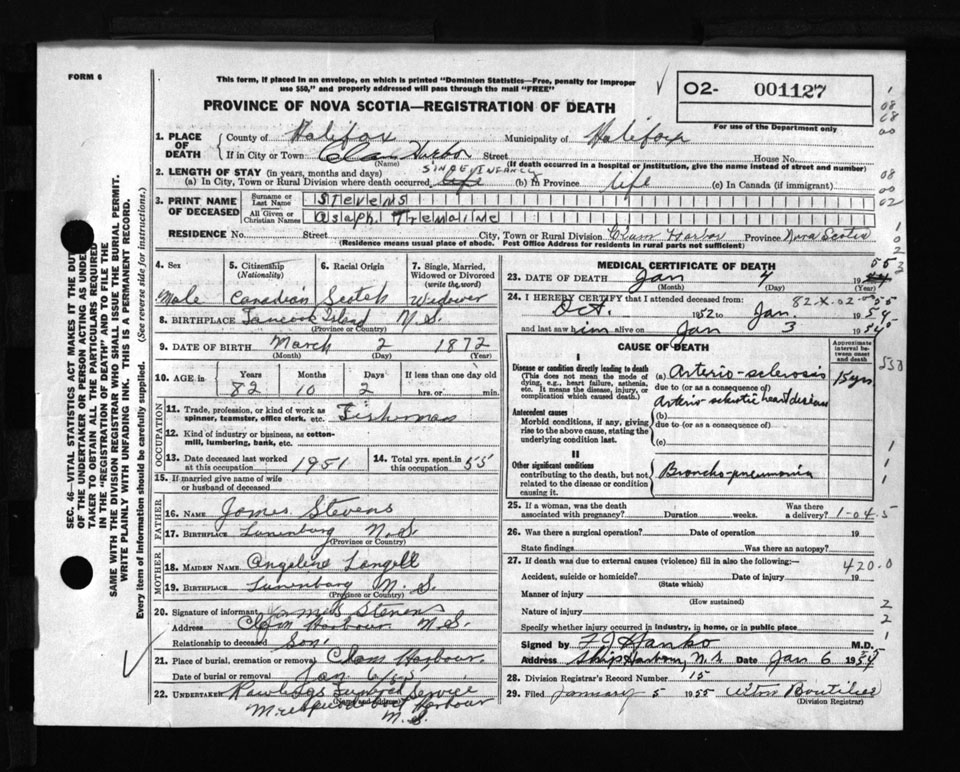 FORM 6
This form, if placed in an envelope, on which is printed "Dominion Statistics—Free, penalty for improper
use $50," and properly addressed will pass through the mail "FREE"
PROVINCE OF NOVA SCOTIA—REGISTRATION OF DEATH
02- 001127
For use of the Department only
1. PLACE OF DEATH
County of Halifax Municipality of Halifax
If in City or Town Clam Harbor Street House No.
(Name) (If death occurred in a hospital or institution, give the name instead of street and number)
2. LENGTH OF STAY (in years, months and days) SINCE INFANCY
(a) In City, Town or Rural Division where death occurred (b) In Province life (c) In Canada (if immigrant)
3. PRINT NAME OF DECEASED
Surname or Last Name Stevens
All Given or Christian Names Asaph Tremaine
RESIDENCE No. Street City, Town or Rural Division Clam Harbor Province Nova Scotia
(Residence means usual place of abode. Post Office Address for residents in rural parts not sufficient)
4. Sex 5. Citizenship (Nationality) 6. Racial Origin 7. Single, Married, Widowed or Divorced (write the word)
Male Canadian Scotch Widower
8. BIRTHPLACE Tancook Island N.S.
(Province or Country)
9. DATE OF BIRTH March 2 1872
(Month) (Day) (Year)
10. AGE in Years Months Days If less than one day old
82 10 2 hrs. or min.
OCCUPATION
11. Trade, profession, or kind of work as spinner, teamster, office clerk, etc. Fisherman
12. Kind of industry or business, as cotton-mill, lumbering, bank, etc.
13. Date deceased last worked at this occupation 1951 14. Total yrs. spent in this occupation 55
15. If married give name of wife or husband of deceased
FATHER
16. NAME James Stevens
17. BIRTHPLACE Lunenburg N.S.
(Province or Country)
MOTHER
18. MAIDEN NAME Angeline Langell
19. BIRTHPLACE Lunenburg N.S.
(Province or Country)
20. Signature of informant James Stevens
Address Clam Harbour N.S.
Relationship to deceased Son.
21. Place of burial, cremation or removal Clam Harbour.
Date of burial or removal Jan 6/55
22. UNDERTAKER Rawlings Funeral Service
(Name and address)
Musquodoboit Harbour
N.S.
MEDICAL CERTIFICATE OF DEATH
23. DATE OF DEATH Jan 4 19 55
(Month) (Day)
24. I HEREBY CERTIFY that I attended deceased from: 82-X-02-
Oct. 1952 to Jan. 1954
and last saw him alive on Jan 3 1954
CAUSE OF DEATH
Approximate interval between onset and death
I
Disease or condition directly leading to death
(This does not mean the mode of dying, e.g., heart failure, asthenia, etc. It means the disease, injury, or complication which caused death.)
(a) Arterio-sclerosis 15 yrs
due to (or as a consequence of)
Arterio sclerotic heart disease
Antecedent causes
Morbid conditions, if any, giving rise to the above cause, stating the underlying condition last.
(b)
due to (or as a consequence of)
(c)
II
Other significant conditions
contributing to the death, but not related to the disease or condition causing it.
Broncho-pneumonia
25. If a woman, was the death associated with pregnancy? Duration weeks. Was there a delivery? 1-04-5
26. Was there a surgical operation? Date of operation 19
State findings Was there an autopsy?
27. If death was due to external causes (violence) fill in also the following:— 420.0
Accident, suicide or homicide? Date of injury 19
(State which)
Manner of injury
(How sustained)
Nature of injury
Specify whether injury occurred in industry, in home, or in public place
Signed by F J Hanko M.D.
Address Ship Harbour, N.S. Date Jan 6 1954
28. Division Registrar's Record Number 15
29. Filed January 5 1955 Boutilier
(Division Registrar)
SEC. 46—VITAL STATISTICS ACT MAKES IT THE DUTY
OF THE UNDERTAKER OR PERSON ACTING AS UNDER-
TAKER TO OBTAIN ALL THE PARTICULARS REQUIRED
IN THE "REGISTRATION OF DEATH" AND TO FILE THE
SAME WITH THE DIVISION REGISTRAR WHO SHALL ISSUE THE BURIAL PERMIT.
WRITE PLAINLY WITH UNFADING INK. THIS IS A PERMANENT RECORD.
Every item of information should be carefully supplied. (See reverse side for instructions.)